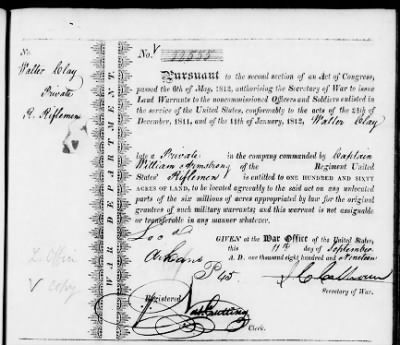 No.
Walter Clay
Private
R. Riflemen
WAR DEPARTMENT.
No. 11555
PURSUANT to the second section of an Act of Congress,
passed the 6th of May, 1812, authorising the Secretary of War to issue
Land Warrants to the noncommissioned Officers and Soldiers enlisted in
the service of the United States, conformably to the acts of the 24th of
December, 1811, and of the 11th of January, 1812, Walter Clay
late a Private in the company commanded by Captain
William Armstrong of the Regiment United
States' Riflemen is entitled to ONE HUNDRED AND SIXTY
ACRES OF LAND, to be located agreeably to the said act on any unlocated
parts of the six millions of acres appropriated by law for the original
grantees of such military warrants; and this warrant is not assignable
or transferable in any manner whatever.
GIVEN at the War Office of the United States,
this 11th day of September
A. D. one thousand eight hundred and Nineteen
J C Calhoun
Secretary of War.
Registered
Clerk.